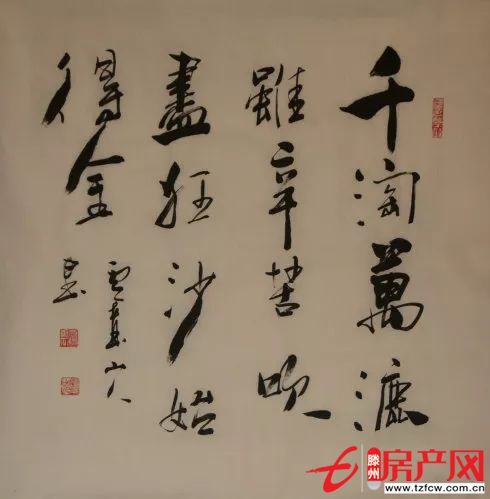 千淘萬漉
雖辛苦吹
盡狂沙始
得金
山人
滕州
房产网
www.tzfcw.com.cn